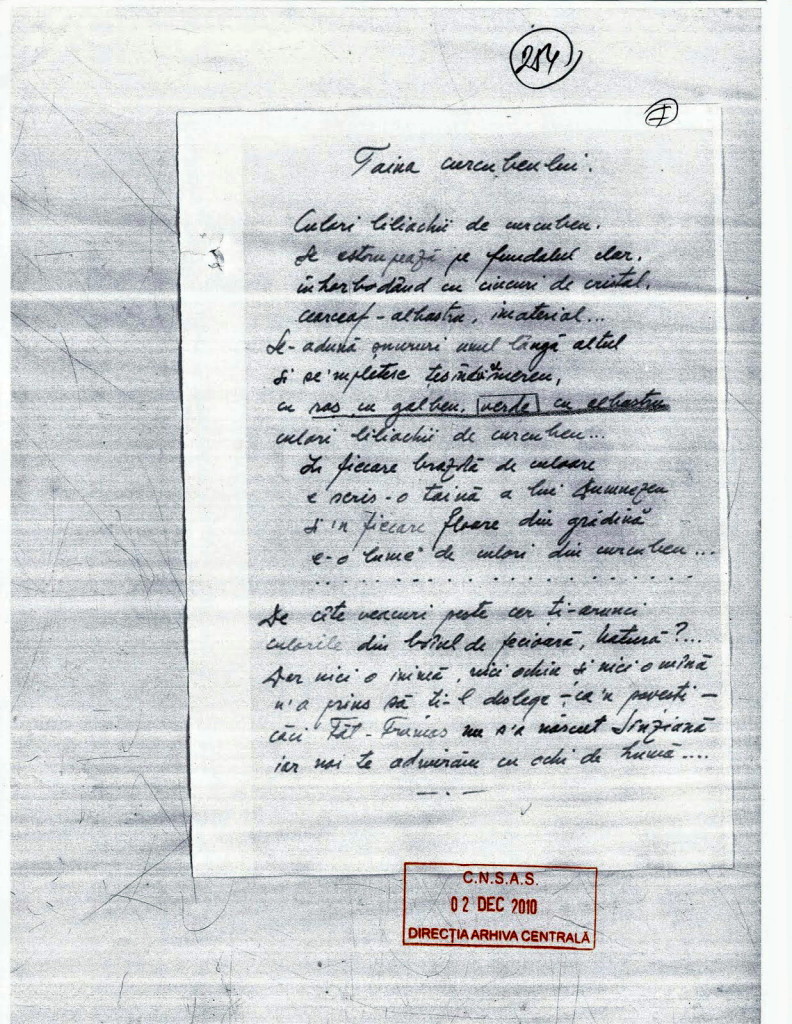 254
I
Taina curcubeului.
Culori liliachii de curcubeu.
Se estompează pe fundalul clar,
înhorbodând cu ciucuri de cristal,
cearceaf-albastru, imaterial...
Se-adună șnururi unul lângă altul
Și se'mpletesc țesându mereu,
cu roș cu galben, verde cu albastru
culori liliachii de curcubeu...
În fiecare brazdă de culoare
e scris-o taină a lui Dumnezeu
Și'n fiecare floare din grădină
e-o lume de culori din curcubeu...
. . . . . . . . . . . . . . . . . . .
De câte veacuri peste cer ți-arunci
culorile din de fecioară, Natură?...
Dar nici o inimă, nici ochiu și nici o mînă
n'a prins să ți-l deslege - ca'n povești -
căci Făt-Frumos nu s'a născut Sînziană
iar noi te admirăm cu ochi de humă....
— . —
C.N.S.A.S.
02 DEC 2010
DIRECȚIA ARHIVA CENTRALĂ